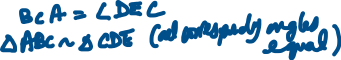 BCA = ∠DEC
△ABC ~ △CDE (all corresponding angles
equal)